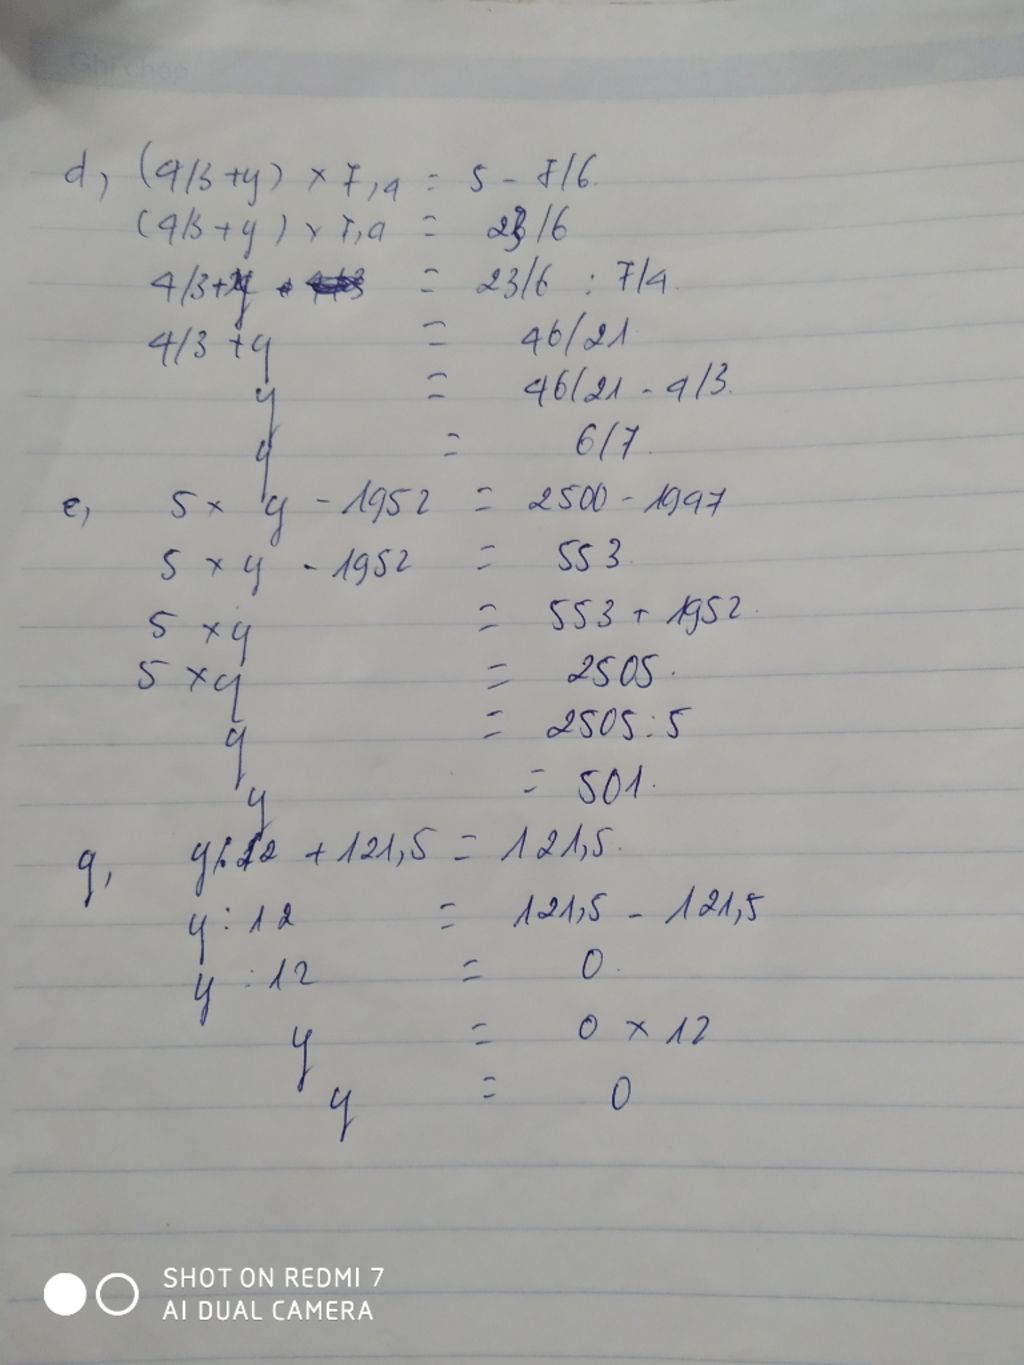 Ghi chép
d, (4/3 + y) × 7,4 = 5 - 7/6
(4/3 + y) × 7,4 = 23/6
4/3 + y = 23/6 : 7/4
4/3 + y = 46/21
y = 46/21 - 4/3
y = 6/7
e, 5 × y - 1952 = 2500 - 1947
5 × y - 1952 = 553
5 × y = 553 + 1952
5 × y = 2505
y = 2505 : 5
y = 501
g, y : 12 + 121,5 = 121,5
y : 12 = 121,5 - 121,5
y : 12 = 0
y = 0 × 12
y = 0
SHOT ON REDMI 7
AI DUAL CAMERA